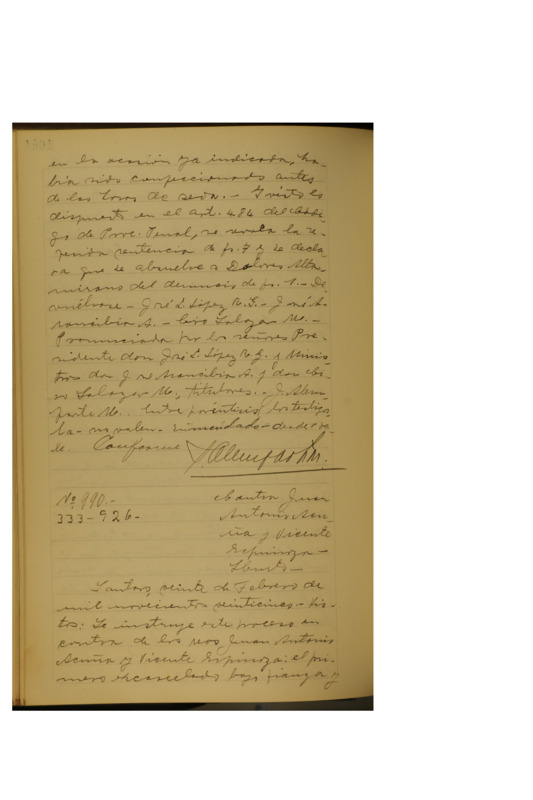 en la ocasión ya indicada, ha-
bía sido confeccionado antes
de las horas de seda. - I visto lo
dispuesto en el art. 484 del Códi-
go de Proc. Penal, se revoca la re-
ferida sentencia de fs. 7 y se decla-
ra que se absuelve a Dolores Alta-
mirano del denuncio de fs. 1. - De-
vuélvase - José L. López R. G. - José A-
rancibia A. - Ciro Salazar M. -
Pronunciada por los señores Pre-
sidente don José L. López R. G. y Minis-
tros don José Arancibia A. y don Ci-
ro Salazar M., titulares. - J. Alem-
parte M. Entre paréntesis los testigos
la - no valen - enmendado - desde - va-
le. Conforme
Nº 990. -
333 - 926 -
Contra Juan
Antonio Acu-
ña y Vicente
Espinoza -
Hurto -
Santiago, veinte de Febrero de
mil novecientos veinticinco - Vis-
tos: Se instruye este proceso en
contra de los reos Juan Antonio
Acuña y Vicente Espinoza: el pri-
mero excarcelado bajo fianza y